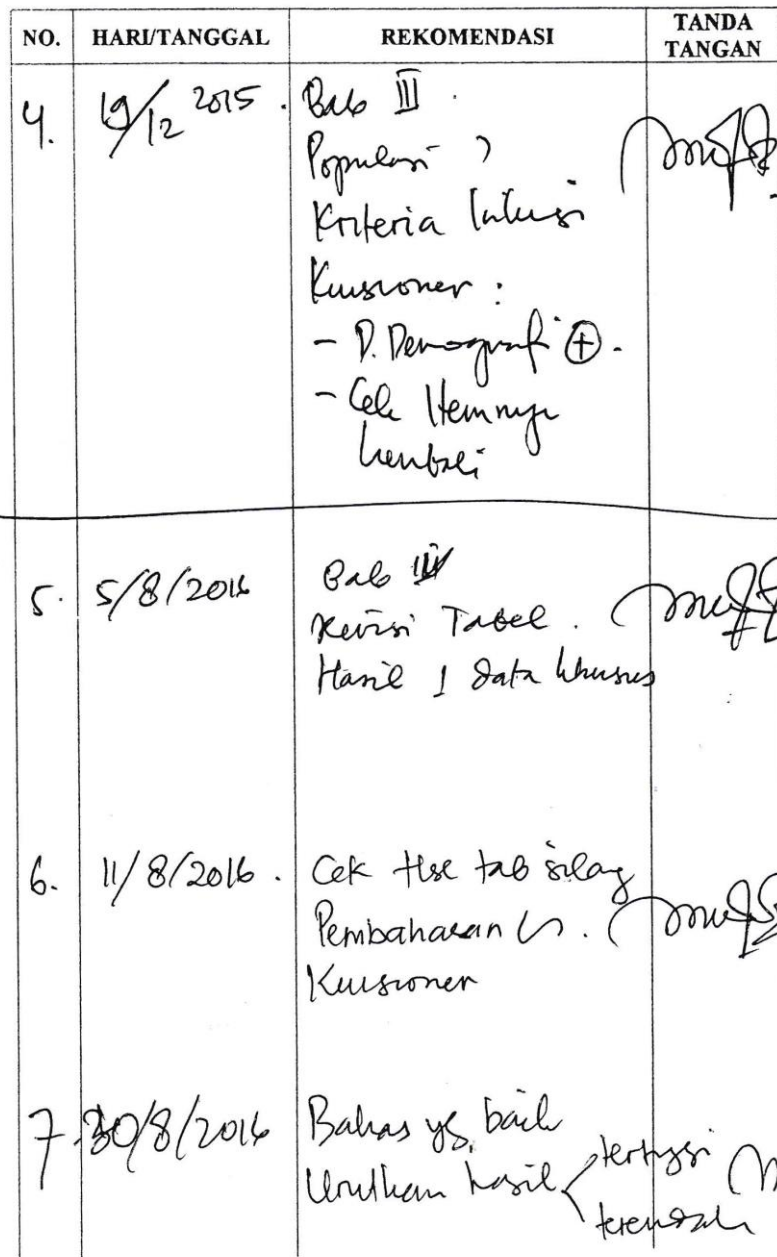 NO. HARI/TANGGAL REKOMENDASI TANDA TANGAN
4. 19/12 2015. Bab III.
Populasi ?
Kriteria Inklusi
Kuisioner :
- D. Demografi (+).
- Cek Itemnya
kembali
5. 5/8/2016 Bab IV
Revisi Tabel.
Hasil 1 data khusus
6. 11/8/2016. Cek Hsl tab silag
Pembahasan
Kuisioner
7. 30/8/2016 Bahas yg baik
Urutkan hasil tertinggi
terendah